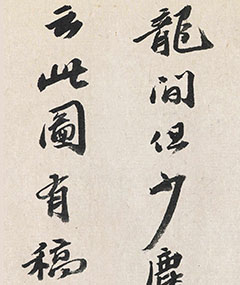 龍間但少塵
云此圖有稿